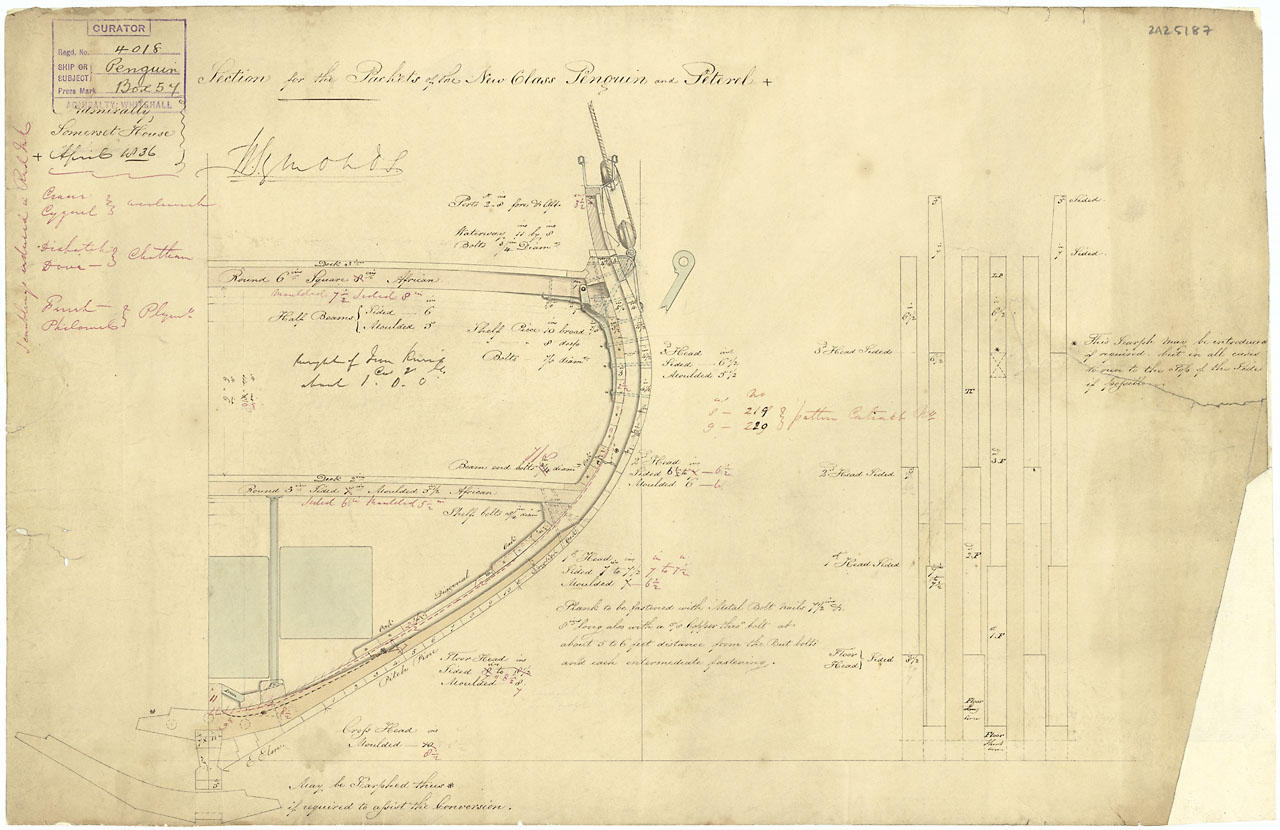 CURATOR
Regd. No. 4018
SHIP OR SUBJECT Penguin
Press Mark Box 57
ADMIRALTY: WHITEHALL
2A25187
Section for the Packets of the New Class Penguin and Peterel +
Admiralty
Somerset House
+ April 1836
W Symonds
Scantlings reduced in Red Ink
Crane
Cygnet } Woolwich
Dispatch
Dove } Chatham
Philomel
Ports 2..8 fore & Aft
Waterway 11 by 8
Bolts 3/4 Diamr
Deck 3 ins
Round 6 ins Square 8 ins African
Moulded 7 1/2 Sided 8 in
Half Beams { Sided 6
Moulded 5
Shelf Piece 10 broad
8 deep
Bolts 7/8 diamr
Weight of Iron Knees
about 1. 0. 0
3d Head ins
Sided 6 1/2
Moulded 5 1/2
8 - 219
9 - 220
Beam end bolts 3/4 diamr
Deck 2 ins
Round 5 ins Sided Moulded 5 1/2 African
Sided 6 in Moulded 5 1/2
Shelf bolts diamr
2d Head ins
Sided 6 1/2 - 6 1/2
Moulded 6 - 6
1st Head ins
Sided 7 to 7 1/2 7 to 7 1/2
Moulded 7 - 6 1/2
Plank to be fastened with Metal Bolt nails 7 1/2 &
8 ins long also with a Copper thro' bolt at
about 5 to 6 feet distance from the But bolts
and each intermediate fastening.
Diagonal
English Oak
Oak
Pitch Pine
Floor Head ins
Sided 8 to 8 1/2
Moulded 8
7
Cross Head ins
Moulded 10
8 1/2
E. Elm
May be Scarphed thus *
if required to assist the Conversion.
5 Sided
7 Sided
3d Head Sided
2d Head Sided
1st Head Sided
Floor Head } Sided 8 1/2
6 1/2
2.F
3.F
1.F
Floor
Long
Floor
Short
* This Scarph may be introduced
if required but in all cases
to run to the Top of the Side
if possible